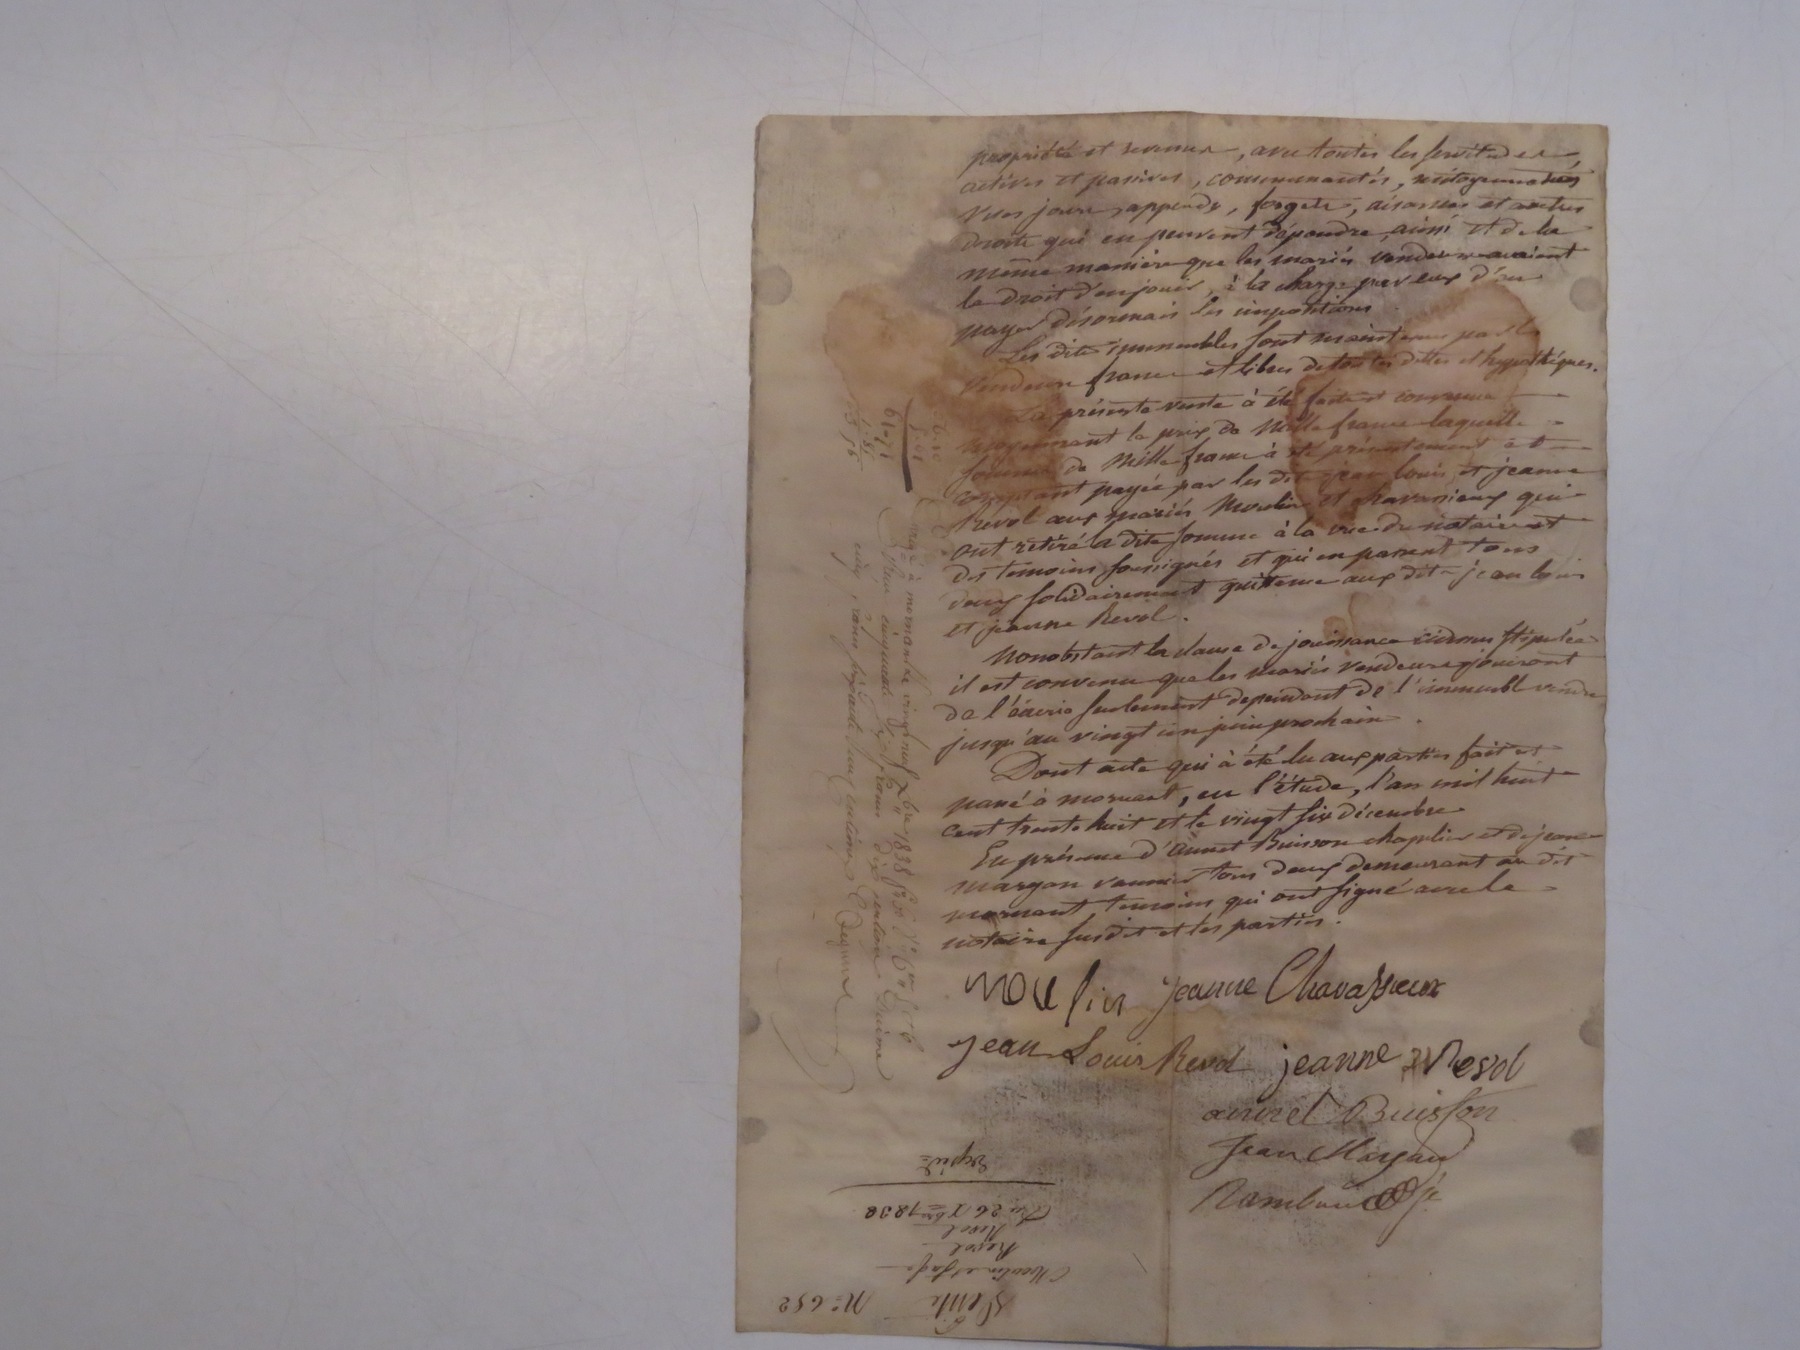 propriété et revenus, avec toutes les servitudes
actives et passives, communautés, mitoyennetés
vues, jours, appends, forgets, aisances et autres
droits qui en peuvent dépendre, ainsi et de la
même manière que les mariés vendeurs avaient
le droit d'en jouir, à la charge par eux d'en
payer désormais les impositions
Les dits immeubles sont maintenus par les
vendeurs francs et libres de toutes dettes et hypothèques.
La présente vente à été faite et convenue
moyennant le prix de Mille francs laquelle
somme de Mille francs à été présentement et
comptant payée par les dits jean louis et jeanne
Revol aux mariés Moulin et chavassieux qui
ont retiré la dite somme à la vue du notaire et
des temoins soussignés et qui en passent tous
deux solidairement quittance aux dits jean louis
et jeanne Revol.
Nonobstant la clause de jouissance cidessus stipulée
il est convenu que les mariés vendeurs jouiront
de l'écurie seulement dependant de l'immeuble vendu
jusqu'au vingt un juin prochain.
Dont acte qui à été lu aux parties fait et
passé à mornant, en l'étude, l'an mil huit
cent trente huit et le vingt six décembre
En présence d'annet Buisson chapelier et de jean
margan vannier tous deux demeurant au dit
mornant, temoins qui ont signé avec le
notaire susdit et les parties.
Moulin jeanne Chavassieux
jean Louis Revol jeanne Revol
annet Buisson
Jean Margan
à mornant le vingt neuf Xbre 1838
cinquante francs dix centimes
cinq francs
N° 652
Vente
Moulin et
Revol
Du 26 Xbre 1838
Expédié